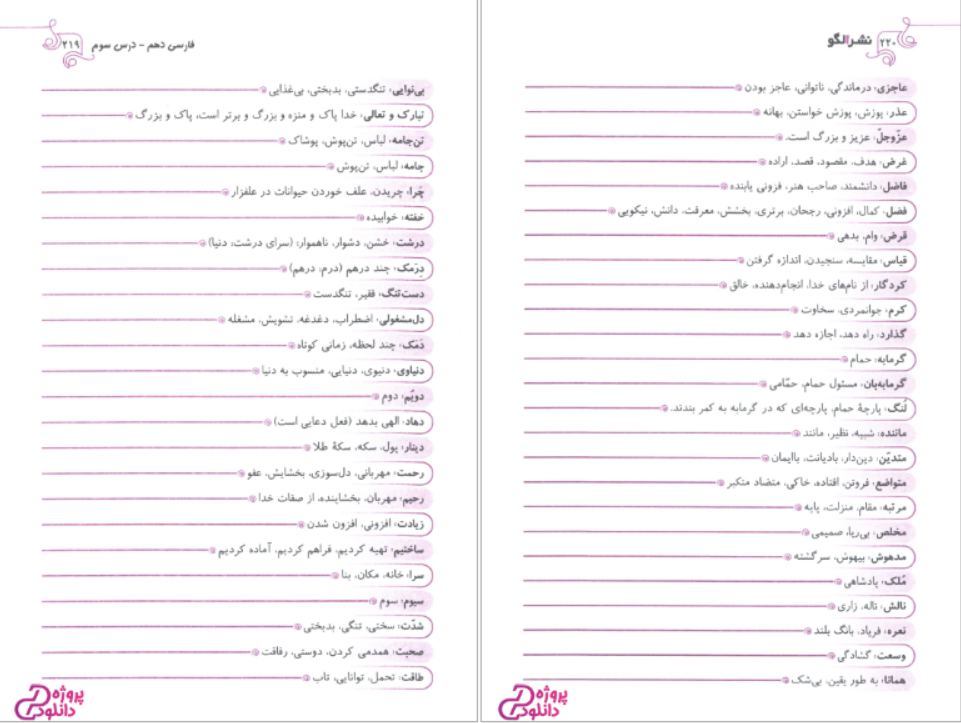 ۲۱۹
فارسی دهم - درس سوم
بی‌نوایی: تنگدستی، بدبختی، بی‌غذایی
تبارک و تعالی: خدا پاک و منزه و بزرگ و برتر است، پاک و بزرگ
تن‌جامه: لباس، تن‌پوش، پوشاک
جامه: لباس، تن‌پوش
چَرا: چریدن، علف خوردن حیوانات در علفزار
خفته: خوابیده
درشت: خشن، دشوار، ناهموار؛ (سرای درشت: دنیا)
دِرَمک: چند درهم (درم: درهم)
دست‌تنگ: فقیر، تنگدست
دل‌مشغولی: اضطراب، دغدغه، تشویش، مشغله
دَمَک: چند لحظه، زمانی کوتاه
دنیاوی: دنیوی، دنیایی، منسوب به دنیا
دویُم: دوم
دهاد: الهی بدهد (فعل دعایی است)
دینار: پول، سکه، سکهٔ طلا
رحمت: مهربانی، دل‌سوزی، بخشایش، عفو
رحیم: مهربان، بخشاینده، از صفات خدا
زیادت: افزونی، افزون شدن
ساختیم: تهیه کردیم، فراهم کردیم، آماده کردیم
سرا: خانه، مکان، بنا
سیوم: سوم
شدّت: سختی، تنگی، بدبختی
صحبت: همدمی کردن، دوستی، رفاقت
طاقت: تحمل، توانایی، تاب
پروژه
دانلود
۲۲۰
نشر الگو
عاجزی: درماندگی، ناتوانی، عاجز بودن
عذر: پوزش، پوزش خواستن، بهانه
عزّوجلّ: عزیز و بزرگ است.
غرض: هدف، مقصود، قصد، اراده
فاضل: دانشمند، صاحب هنر، فزونی یابنده
فضل: کمال، افزونی، رجحان، برتری، بخشش، معرفت، دانش، نیکویی
قرض: وام، بدهی
قیاس: مقایسه، سنجیدن، اندازه گرفتن
کردگار: از نام‌های خدا، انجام‌دهنده، خالق
کرم: جوانمردی، سخاوت
گذارد: راه دهد، اجازه دهد
گرمابه: حمام
گرمابه‌بان: مسئول حمام، حمّامی
لُنگ: پارچهٔ حمام، پارچه‌ای که در گرمابه به کمر بندند.
ماننده: شبیه، نظیر، مانند
متدیّن: دین‌دار، بادیانت، باایمان
متواضع: فروتن، افتاده، خاکی، متضاد متکبر
مرتبه: مقام، منزلت، پایه
مخلص: بی‌ریا، صمیمی
مدهوش: بیهوش، سرگشته
مُلک: پادشاهی
نالش: ناله، زاری
نعره: فریاد، بانگ بلند
وسعت: گشادگی
همانا: به طور یقین، بی‌شک
پروژه
دانلود